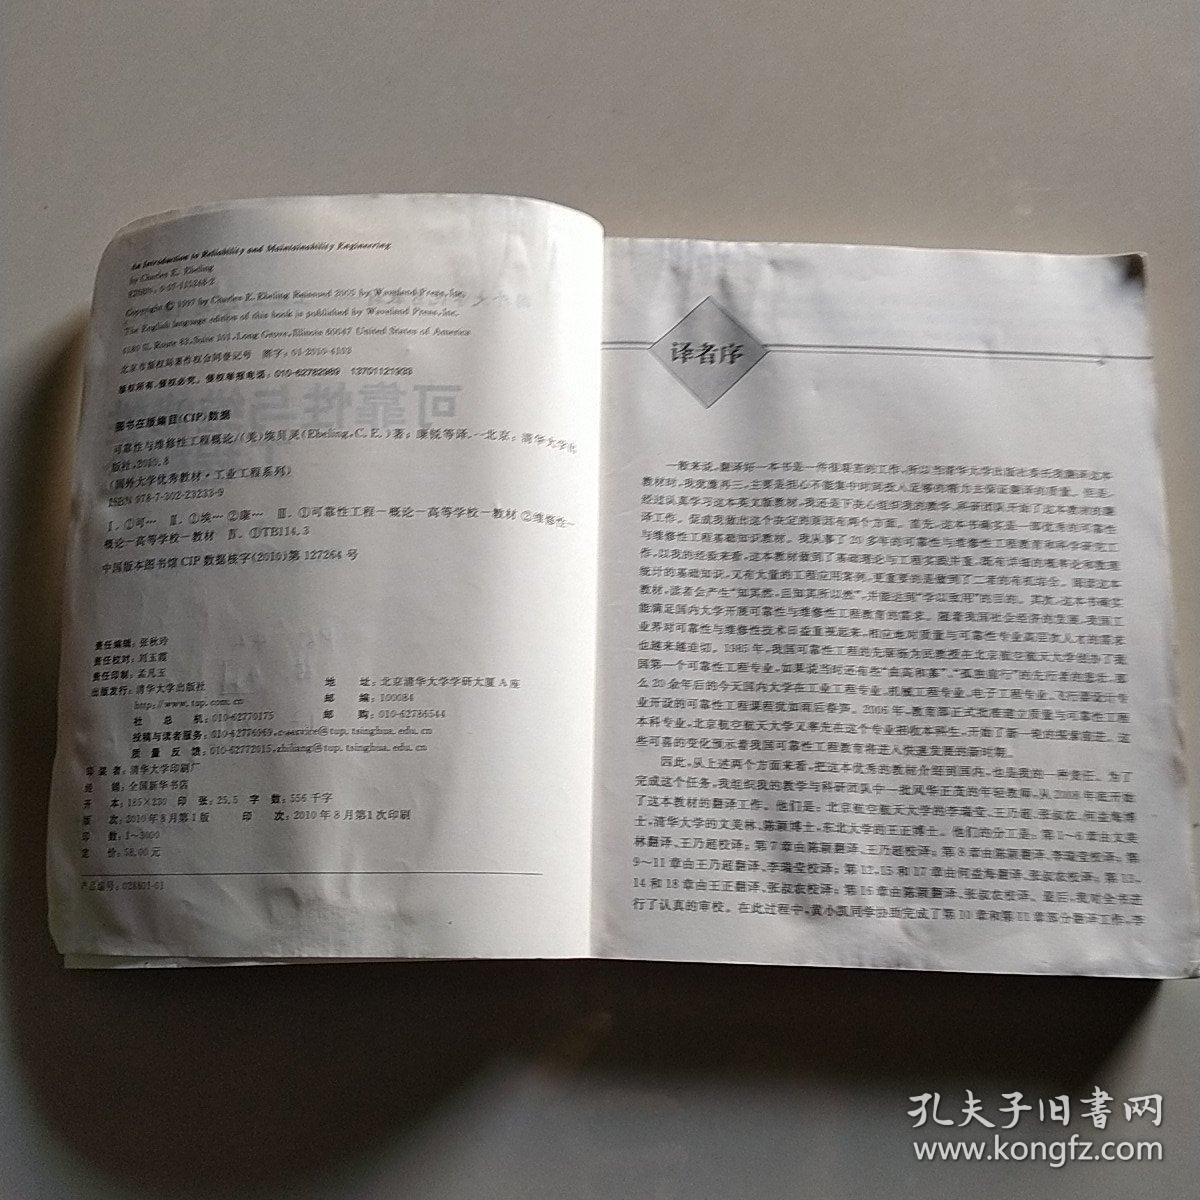 An Introduction to Reliability and Maintainability Engineering
by Charles E. Ebeling
Copyright © 1997 by Charles E. Ebeling Reissued 2005 by Waveland Press, Inc.
The English language edition of this book is published by Waveland Press, Inc.
4180 IL Route 83, Suite 101, Long Grove, Illinois 60047 United States of America
北京市版权局著作权合同登记号 图字：01-2010-4103
版权所有，侵权必究。侵权举报电话：010-62782989 13701121933
图书在版编目（CIP）数据
可靠性与维修性工程概论/（美）埃贝灵（Ebeling, C. E.）著；康锐等译. —北京：清华大学出
版社，2010.8
（国外大学优秀教材·工业工程系列）
ISBN 978-7-302-23233-9
Ⅰ. ①可… Ⅱ. ①埃… ②康… Ⅲ. ①可靠性工程－概论－高等学校－教材 ②维修性－
概论－高等学校－教材 Ⅳ. ①TB114.3
中国版本图书馆CIP数据核字（2010）第127264号
责任编辑：张秋玲
责任校对：刘玉霞
责任印制：孟凡玉
出版发行：清华大学出版社 地 址：北京清华大学学研大厦A座
http://www.tup.com.cn 邮 编：100084
社 总 机：010-62770175 邮 购：010-62786544
投稿与读者服务：010-62776969,c-service@tup.tsinghua.edu.cn
质 量 反 馈：010-62772015,zhiliang@tup.tsinghua.edu.cn
印 装 者：清华大学印刷厂
经 销：全国新华书店
开 本：185×230 印 张：25.5 字 数：556千字
版 次：2010年8月第1版 印 次：2010年8月第1次印刷
印 数：1～3000
定 价：58.00元
产品编号：028801-01
译者序
一般来说，翻译好一本书是一件很艰苦的工作，所以当清华大学出版社委托我翻译这本
教材时，我犹豫再三，主要是担心不能集中时间投入足够的精力去保证翻译的质量。但是，
经过认真学习这本英文版教材，我还是下决心组织我的教学、科研团队开始了这本教材的翻
译工作。促成我做出这个决定的原因有两个方面。首先，这本书确实是一部优秀的可靠性
与维修性工程基础知识教材。我从事了20多年的可靠性与维修性工程教育和科学研究工
作，以我的经验来看，这本教材做到了基础理论与工程实践并重，既有详细的概率论和数理
统计的基础知识，又有大量的工程应用案例，更重要的是做到了二者的有机结合。阅读这本
教材，读者会产生“知其然，且知其所以然”，并能达到“学以致用”的目的。其次，这本书确实
能满足国内大学开展可靠性与维修性工程教育的需求。随着我国社会经济的发展，我国工
业界对可靠性与维修性技术日益重视起来，相应地对质量与可靠性专业高层次人才的需求
也越来越迫切。1985年，我国可靠性工程的先驱杨为民教授在北京航空航天大学创办了我
国第一个可靠性工程专业，如果说当时还有些“曲高和寡”、“孤独前行”的先行者的悲壮，那
么20余年后的今天国内大学在工业工程专业、机械工程专业、电子工程专业、飞行器设计专
业开设的可靠性工程课程犹如雨后春笋。2006年，教育部正式批准建立质量与可靠性工程
本科专业，北京航空航天大学又率先在这个专业招收本科生，开始了新一轮的探索前进。这
些可喜的变化预示着我国可靠性工程教育将进入快速发展的新时期。
因此，从上述两个方面来看，把这本优秀的教材介绍到国内，也是我的一种责任。为了
完成这个任务，我组织我的教学与科研团队中一批风华正茂的年轻教师，从2008年底开始
了这本教材的翻译工作。他们是：北京航空航天大学的李瑞莹、王乃超、张叔农、何益海博
士，清华大学的文美林、陈颖博士，东北大学的王正博士。他们的分工是：第1～6章由文美
林翻译、王乃超校译；第7章由陈颖翻译、王乃超校译；第8章由陈颖翻译、李瑞莹校译；第
9～11章由王乃超翻译、李瑞莹校译；第12、15和17章由何益海翻译、张叔农校译；第13、
14和18章由王正翻译、张叔农校译；第16章由陈颖翻译、张叔农校译。最后，我对全书进
行了认真的审校。在此过程中，黄小凯同学协助完成了第10章和第11章部分翻译工作，李
孔夫子旧书网
www.kongfz.com